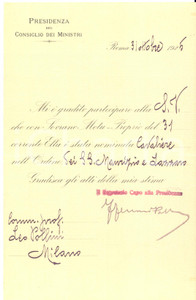 PRESIDENZA
DEL
CONSIGLIO DEI MINISTRI
Roma 31 ottobre 1926
Mi è gradito partecipare alla S. V.
che con Sovrano Motu-Proprio del 31
corrente Ella è stata nominata Cavaliere
nell'Ordine dei SS. Maurizio e Lazzaro
Gradisca gli atti della mia stima
Il Segretario Capo alla Presidenza
Comm. prof.
Leo Pollini
Milano